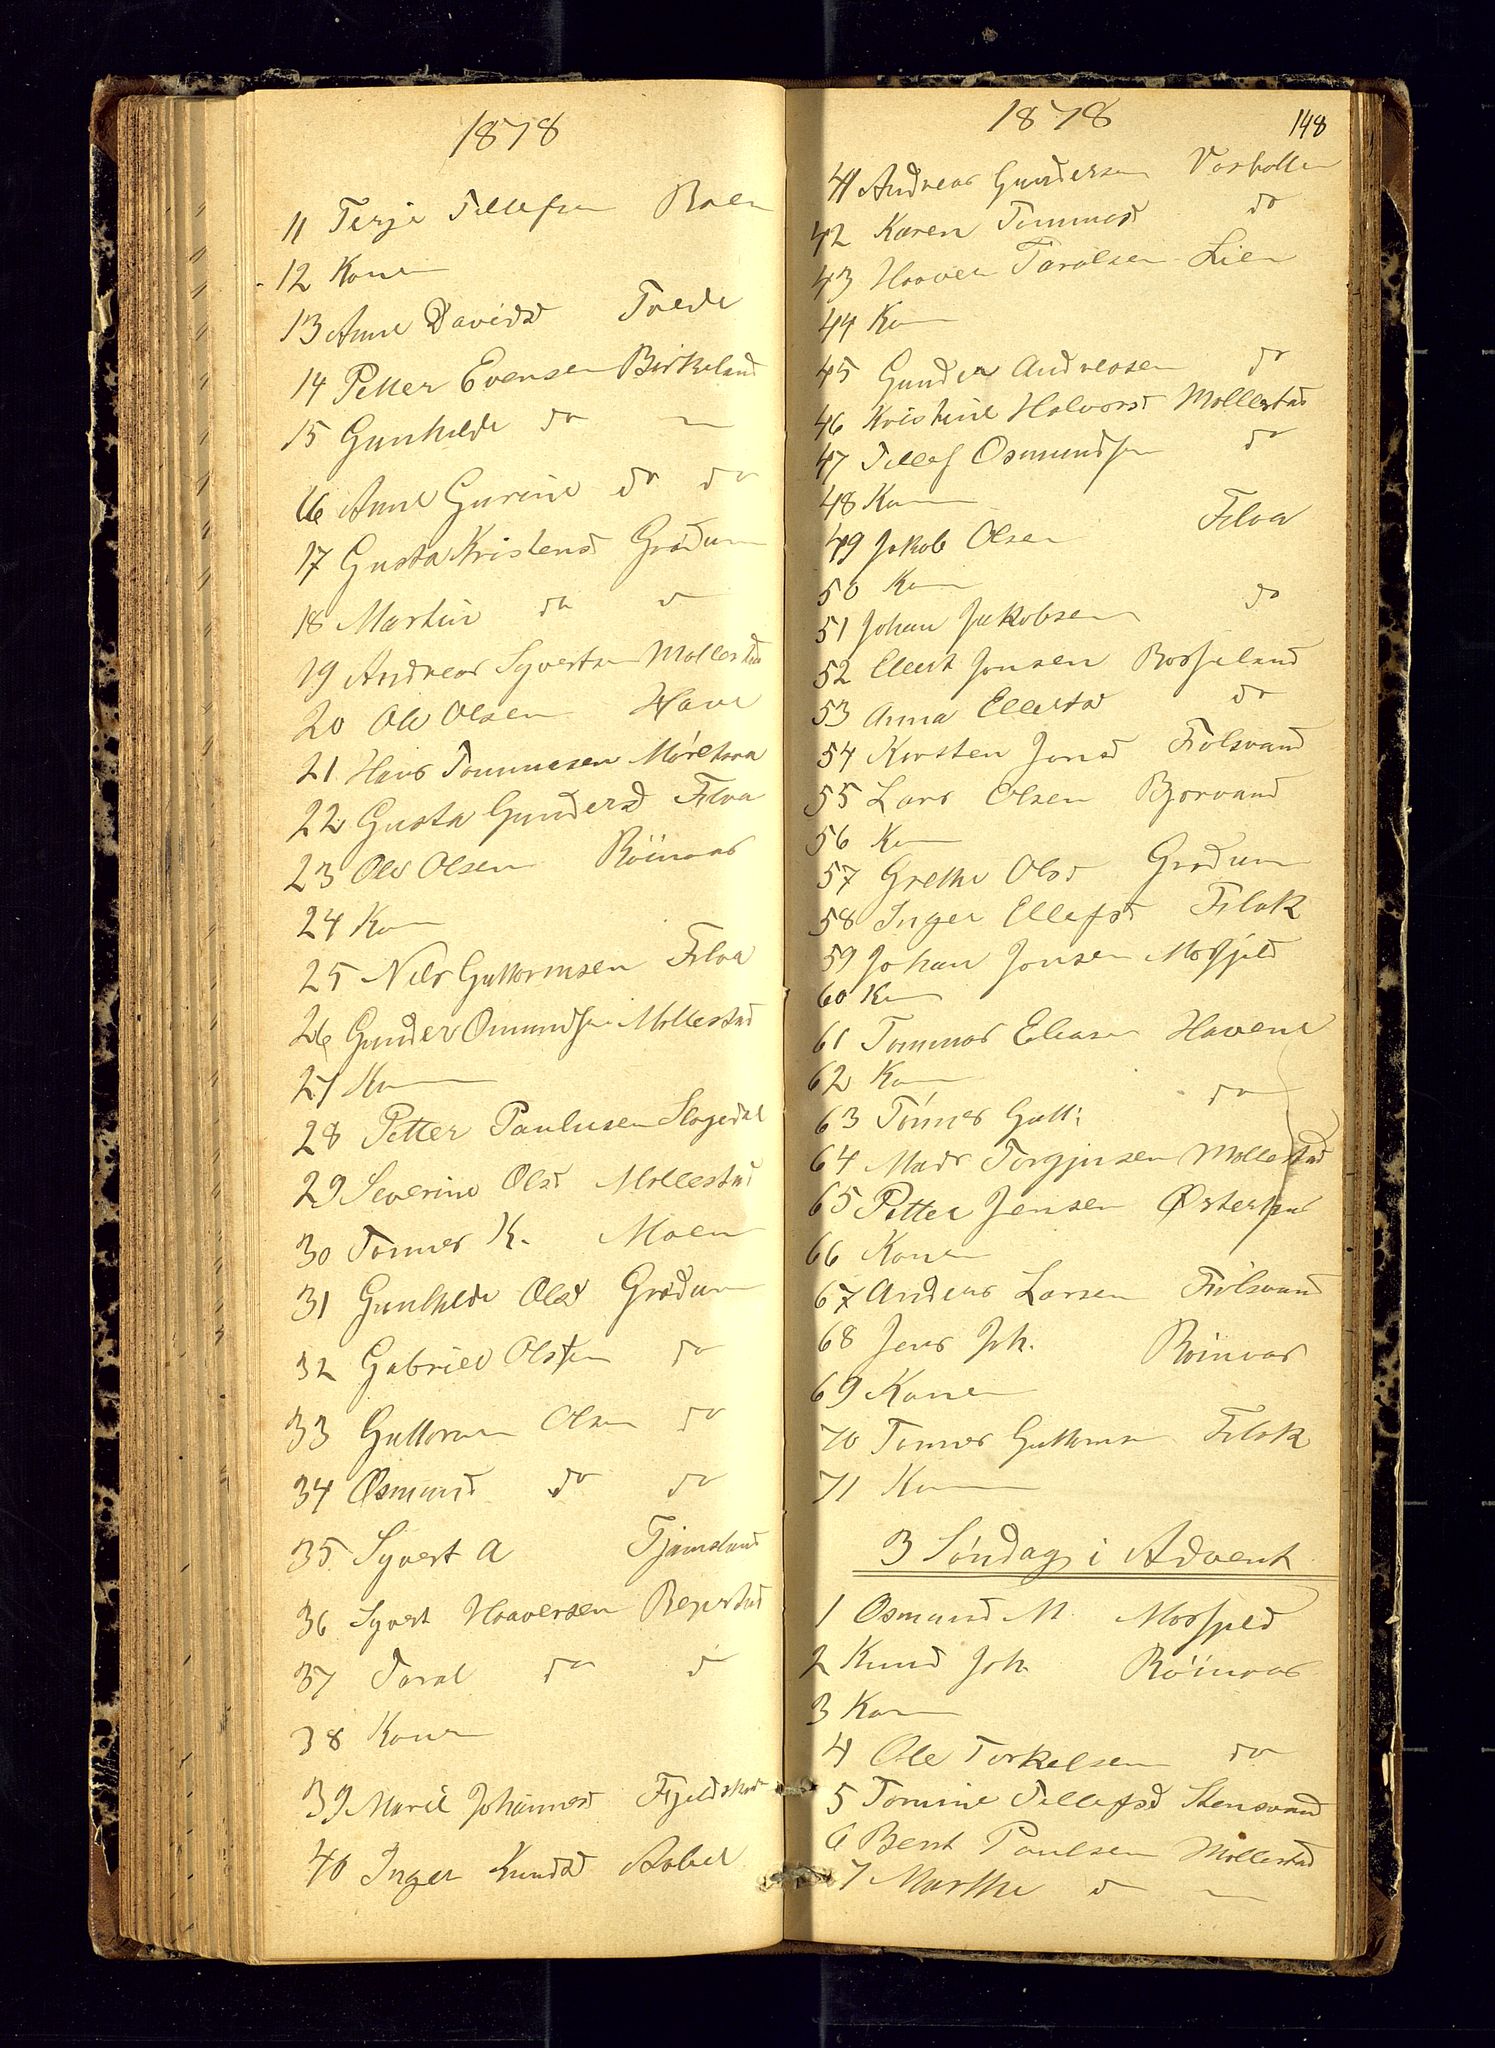 1878
11 Terje Tellefsen Boen
12 Konen
13 Anne Davidsd Tvede
14 Petter Evensen Birkeland
15 Gunhilde do —
16 Anne Gurine do do
17 Gusta Kristensd Grødum
18 Martin do do
19 Andreas Syvertsen Mollestad
20 Ole Olsen Have
21 Hans Tommesen
22 Gusta Gundersd Flaa
23 Ole Olsen Röinaas
24 Kon
25 Nils Guttormsen Flaa
26 Gunder Omundsen Mollestad
27 Kon
28 Petter Paulusen Slogedal
29 Severine Olsd Mollestad
30 Tønnes K. Moen
31 Gunhilde Olsd Grødum
32 Gabriel Olsen do
33 Guttorm Olsen do
34 Osmund do do
35 Syvert A Tjomsland
36 Syvert Haaversen Repstad
37 Taral do do
38 Konen
39 Marie Johannesd
40 Inger Knudsd Aabel
1878
148
41 Andreas Gundersen
42 Karen Tommesd do
43 Haaver Taralsen Lien
44 Kon
45 Gunder Andreasen do
46 Kristine Halvorsd Mollestad
47 Tellef Osmundsen do
48 Kon
49 Jakob Olsen Flaa
50 Kon
51 Johan Jakobsen do
52 Ellert Jonsen Bosseland
53 Anna Ellertsd do
54 Kirsten Jonsd Fidsvand
55 Lars Olsen Bjorvand
56 Kon
57 Grethe Olsd Grødum
58 Inger Ellefsd Flak
59 Johan Jonsen Mosfjeld
60 Kon
61 Tommas Eliasen Havene
62 Kon
63 Tönnes Gutt: do
64 Mads Torgjusen Mollestad
65 Petter Jensen
66 Konen
67 Andreas Larsen Fidsvand
68 Jens Joh. Röinaas
69 Konen
70 Tønnes Guttormsen Flak
71 Kon
3 Søndag i Advent
1 Osmund M. Mosfjeld
2 Knud Joh. Röinaas
3 Kon
4 Ole Torkelsen do
5 Tomine Tellefsd Stensvand
6 Bent Paulsen Mollestad
7 Marthe do —